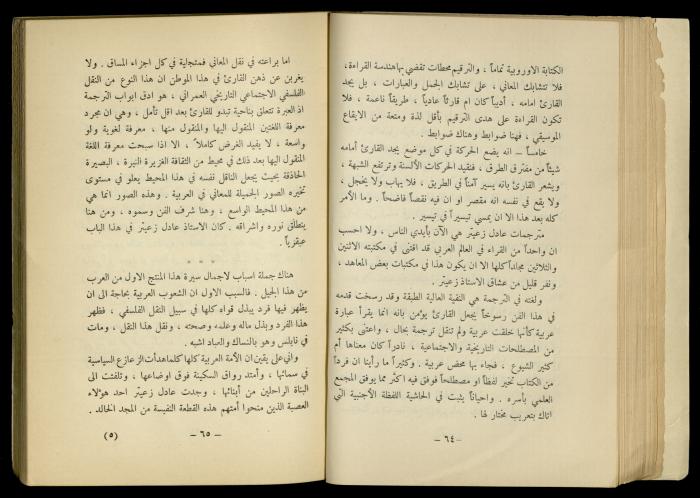 الكتابة الاوروبية تماماً ، والترقيم محطات تقضي بها هندسة القراءة ،
فلا تتشابك المعاني ، على تشابك الجمل والعبارات ، بل يجد
القارئ امامه ، أديباً كان ام قارئاً عادياً ، طريقاً ناعمة ، فلا
تكون القراءة على هدى الترقيم بأقل لذة ومتعة من الايقاع
الموسيقي ، فهنا ضوابط وهناك ضوابط .
خامساً — انه يضع الحركة في كل موضع يجد القارئ أمامه
شيئاً من مفترق الطرق ، فتقيد الحركات الألسنة وترتفع الشبهة ،
ويشعر القارئ بانه يسير آمناً في الطريق ، فلا يهاب ولا يخجل ،
ولا يقع في نفسه انه مقصر او ان فيه نقصاً فاضحاً . وما الأمر
كله بعد هذا الا ان يمسي تيسيراً في تيسير .
مترجمات عادل زعيتر هي الآن بأيدي الناس ، ولا احسب
ان واحداً من القراء في العالم العربي قد اقتنى في مكتبته الاثنين
والثلاثين مجلداً كلها الا ان يكون هذا في مكتبات بعض المعاهد ،
ونفر قليل من عشاق الاستاذ زعيتر .
ولغته في الترجمة هي النقية العالية الطبقة وقد رسخت قدمه
في هذا الفن رسوخاً يجعل القارئ يؤمن بانه انما يقرأ عبارة
عربية كأنها خلقت عربية ولم تنقل ترجمة بحال ، واعتنى بكثير
من المصطلحات التاريخية والاجتماعية ، نادراً كان معناها أم
كثير الشيوع ، فجاء بها محض عربية . وكثيراً ما رأينا ان فرداً
من الكتاب تخير لفظاً او مصطلحاً فوفق فيه اكثر مما يوفق المجمع
العلمي بأسره . واحياناً يثبت في الحاشية اللفظة الأجنبية التي
اتاك بتعريب مختار لها .
— ٦٤ —
اما براعته في نقل المعاني فمتجلية في كل اجزاء المساق . ولا
يغربن عن ذهن القارئ في هذا الموطن ان هذا النوع من النقل
الفلسفي الاجتماعي التاريخي العمراني ، هو ادق ابواب الترجمة
اذ العبرة تتعلق بناحية تبدو للقارئ بعد اقل تأمل ، وهي ان مجرد
معرفة اللغتين المنقول اليها والمنقول منها ، معرفة لغوية ولو
واسعة ، لا يفيد الغرض كاملاً ، الا اذا سبحت معرفة اللغة
المنقول اليها بعد ذلك في محيط من الثقافة الغزيرة النيرة ، البصيرة
الحاذقة بحيث يجعل الناقل نفسه في هذا المحيط يعلو في مستوى
تخيره الصور الجميلة للمعاني في العربية . وهذه الصور انما هي
من هذا المحيط الواسع ، وهنا شرف الفن وسموه ، ومن هنا
ينطلق نوره واشراقه . كان الاستاذ عادل زعيتر في هذا الباب
عبقرياً .
* * *
هناك جملة اسباب لاجمال سيرة هذا المنتج الاول من العرب
من هذا الجيل . فالسبب الاول ان الشعوب العربية بحاجة الى ان
يظهر فيها فرد يبذل قواه كلها في سبيل النقل الفلسفي ، فظهر
هذا الفرد وبذل ماله وعلمه وصحته ، ونقل هذا النقل ، ومات
في نابلس وهو بالنساك والعباد اشبه .
واني على يقين ان الأمة العربية كلها كلما هدأت الزعازع السياسية
في سمائها ، وأمتد رواق السكينة فوق اوضاعها ، وتلفتت الى
البناة الراحلين من أبنائها ، وجدت عادل زعيتر احد هؤلاء
العصبة الذين منحوا أمتهم هذه القطعة النفيسة من المجد الخالد .
— ٦٥ —
(٥)